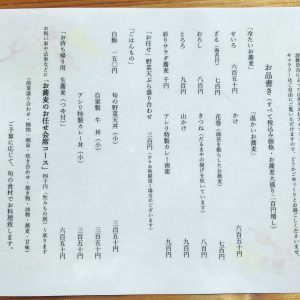 お品書き(すべて税込み価格・お蕎麦大盛り二百円増し)
「冷たいお蕎麦」
せいろ 六百五十円
ざる(海苔付) 七百円
おろし 八百円
とろろ 九百円
彩りサラダ蕎麦 千円
「温かいお蕎麦」
かけ 六百五十円
花巻(海苔を散らしたお蕎麦) 七百円
きつね 八百円
山かけ 九百円
アシリ特製カレー南蛮 九百円
「お任せ」野菜天ぷら盛り合わせ 三百円
「ごはんもの」
白飯 一五〇円
旬の野菜天丼(小) 三百五十円
自家製 牛 丼(小) 三百五十円
アシリ特製カレー丼(小) 三百五十円
「お持ち帰り用 生蕎麦」(つゆ付) 六百五十円
お祝い事や法事などに「お蕎麦のお任せ会席コース」
ご予算に応じて、旬の食材でお料理致します。